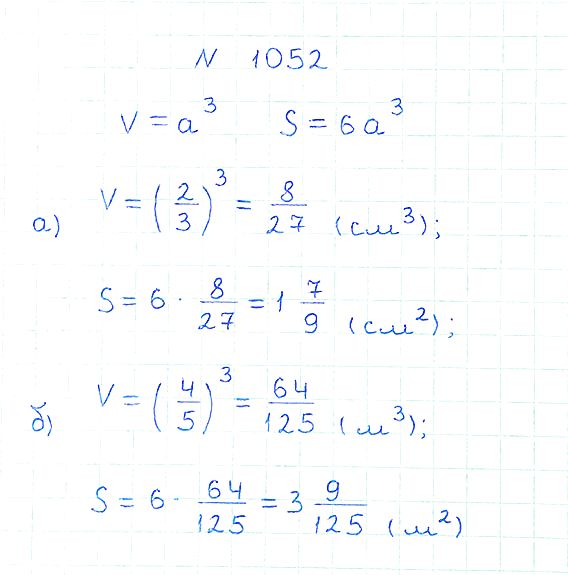 N 1052
V = a³ S = 6a³
а) V = (2/3)³ = 8/27 (см³);
S = 6 · 8/27 = 1 7/9 (см²);
б) V = (4/5)³ = 64/125 (м³);
S = 6 · 64/125 = 3 9/125 (м²)